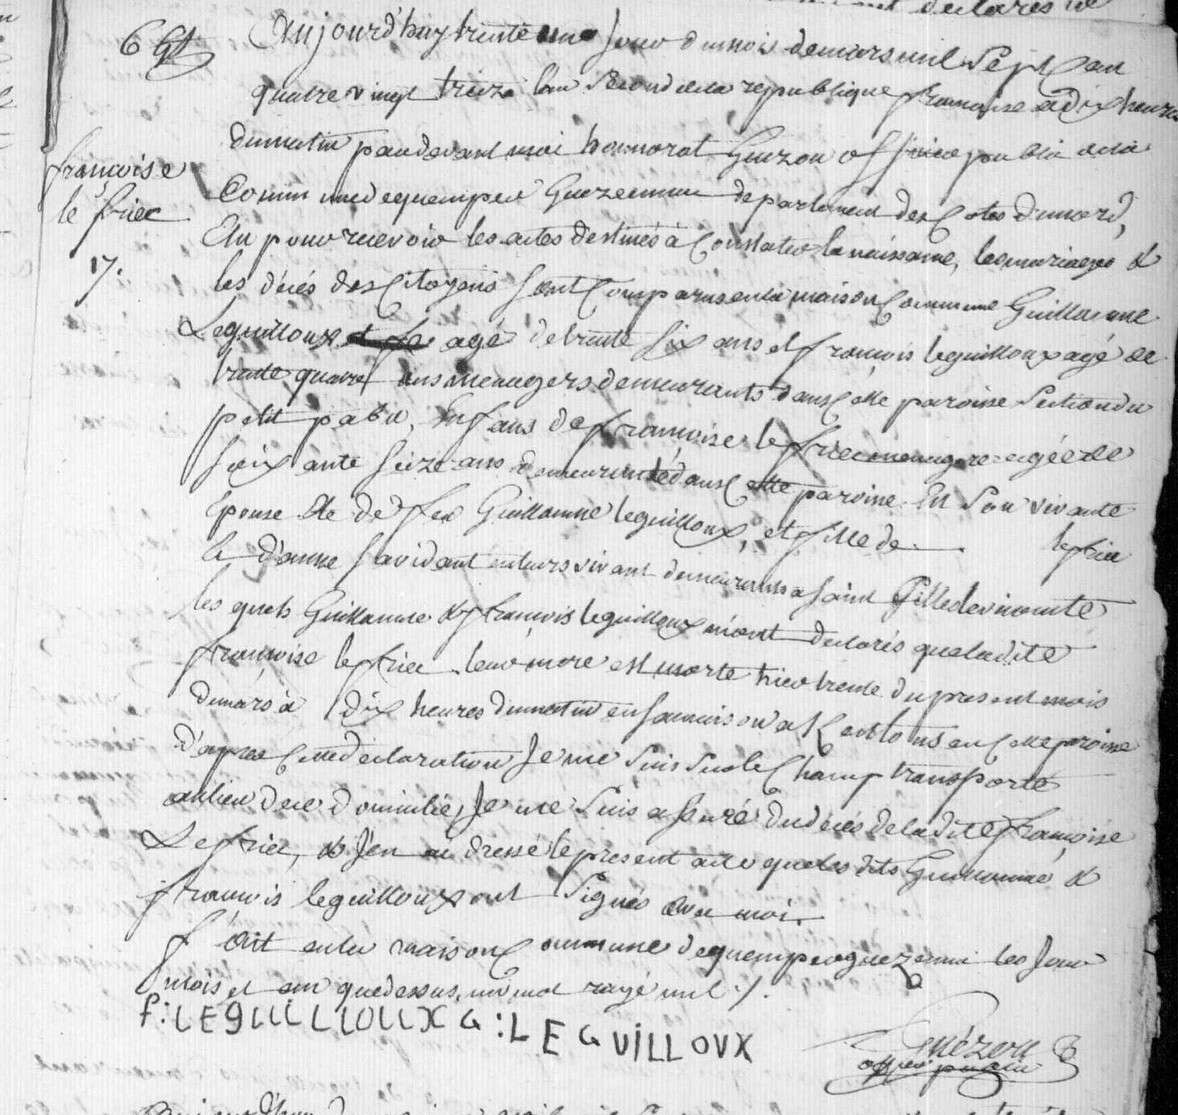 Aujourd'huy trente une Jour dumois demars mil Sept Cent
quatre vingt treize lan Second dela republique francaise a dix heures
dumatin pardevant moi honnorat Guezou officier public dela
Commune dequemper Guezennec departement des Cotes dunord,
Elu pour recevoir les actes destinés à Constater la naissance, les mariages &
les décés des Citoyens Sont Comparus en la maison Commune Guillaume
Leguilloux agé de trente Six ans et francois leguilloux agé de
trente quatre ans menagers demeurants dans Cette paroisse Section du
petit pabu, Enfans de francoise le friec menagere agée de
Soixante Seize ans demeurante dans Cette paroisse En Son vivante
Epouse de deffen Guillaume leguilloux, et fille de lefriec
& d'anne Savidant en leurs vivant demeurants a Saint Gille levicomte
les quels Guillaume & francois leguilloux m'ont déclarés que ladite
francoise lefriec leur mere est morte hier trente du present mois
demars à dix heures dumatin en Sa maison a en Cette paroisse
D'apres Cette déclaration Je me Suis Sur le Champ transporté
au lieu de ce domicile, Je me Suis assuré du décés de ladite françoise
Lefriec, & J'en ai dressé le present acte que les dits Guillaume &
francois leguilloux ont Signés avec moi.
fait en la maison Commune de quemperguezennec les Jour
mois et an que dessus, un mot rayé nul ./.
f: LEGUILLIOUX G: LE GUILLOUX
Guézou
officier public
6 Gt
françoise
le friec
17.